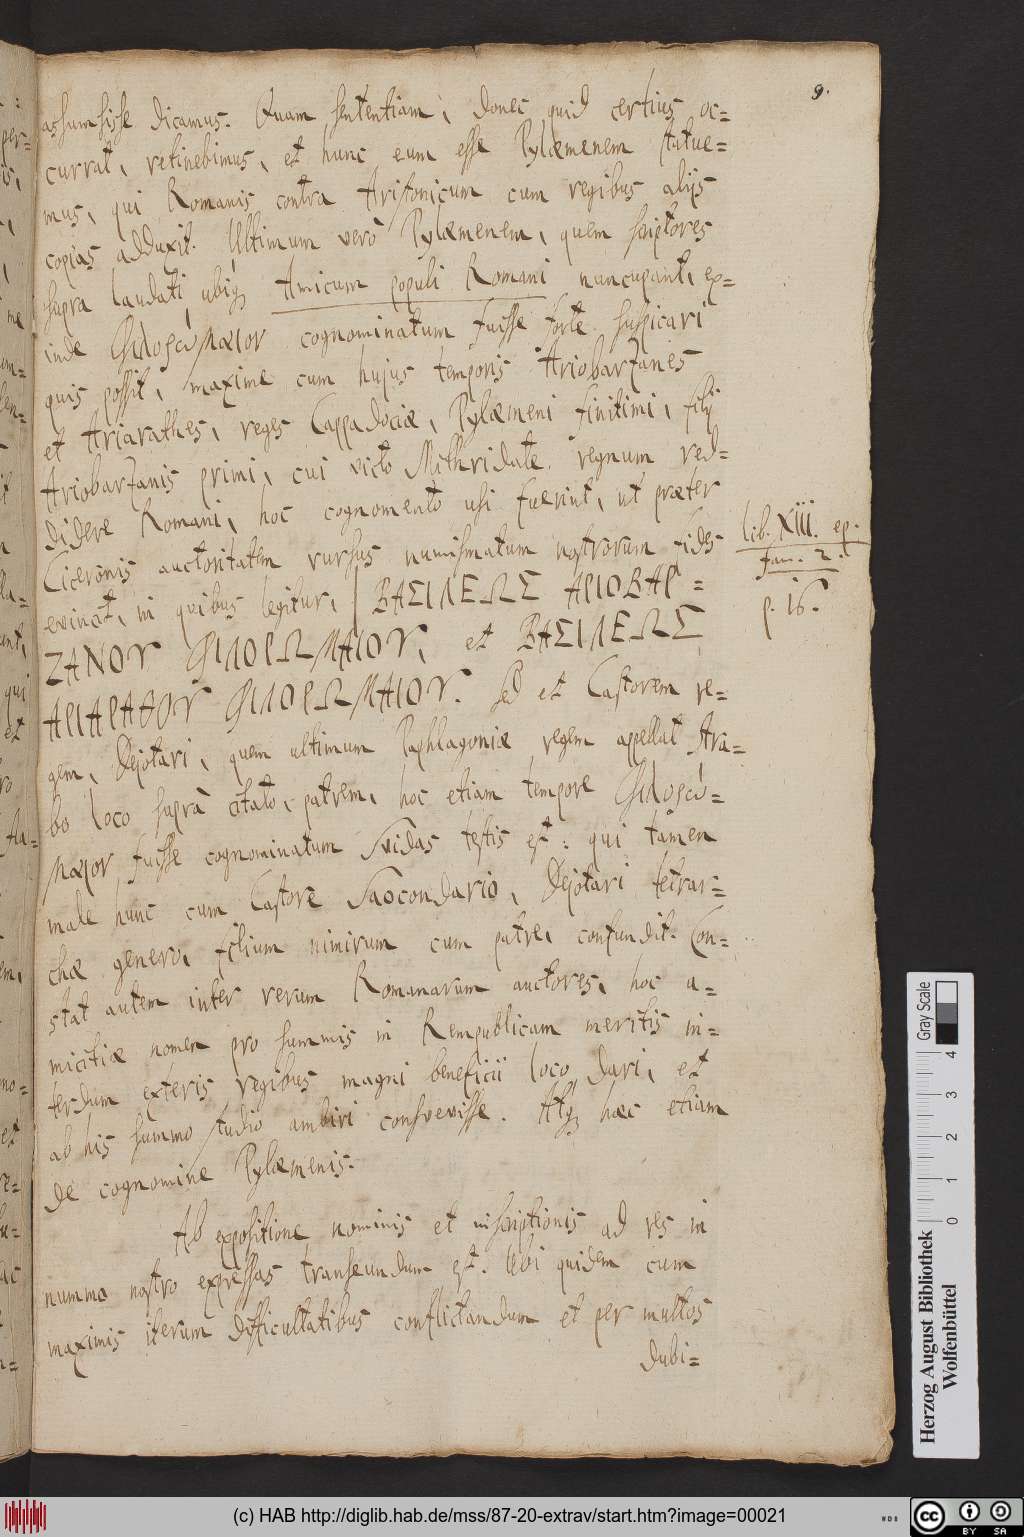 9.
assumsisse dicamus. Quam sententiam, donec quid certius oc=
currat, retinebimus, et hunc eum esse Pylæmenem statue=
mus, qui Romanis contra Aristonicum cum regibus alijs
copias adduxit. Ultimum verò Pylæmenem, quem scriptores
supra laudati ubiq; Amicum populi Romani nuncupant, ex=
inde Φιλορώμαιον cognominatum fuisse forte suspicari
quis possit, maxime cum hujus temporis Ariobarzanes
et Ariarathes, reges Cappadociæ, Pylæmeni finitimi, filij
Ariobarzanis primi, cui victo Mithridate regnum red=
didere Romani, hoc cognomento usi fuerint, ut præter
Ciceronis auctoritatem rursus numismatum nostrorum fides
evincit, in quibus legitur, ΒΑΣΙΛΕΩΣ ΑΡΙΟΒΑΡ=
ΖΑΝΟΥ ΦΙΛΟΡΩΜΑΙΟΥ, et ΒΑΣΙΛΕΩΣ
ΑΡΙΑΡΑΘΟΥ ΦΙΛΟΡΩΜΑΙΟΥ. Sed et Castorem re=
gem, Dejotari, quem ultimum Paphlagoniæ regem appellat Stra=
bo loco suprà citato, patrem, hoc etiam tempore Φιλορώ=
μαιον fuisse cognominatum Svidas testis est: qui tamen
male hunc cum Castore Saocondario, Dejotari tetrar=
chæ genero, filium nimirum cum patre, confundit. Con=
stat autem inter rerum Romanarum auctores, hoc a=
micitiæ nomen pro summis in Rempublicam meritis in=
terdum exteris regibus magni beneficii loco dari, et
ab his summo studio ambiri consvevisse. Atq; hæc etiam
de cognomine Pylæmenis.
Ab expositione nominis et inscriptionis ad res in
nummo nostro expressas transeundum est. Ubi quidem cum
maximis iterum difficultatibus conflictandum et per multos
dubi=
lib. XIII. ep.
fam. 2.
p. 16.
Herzog August Bibliothek
Wolfenbüttel
Gray Scale
0 1 2 3 4
(c) HAB http://diglib.hab.de/mss/87-20-extrav/start.htm?image=00021
cc BY SA